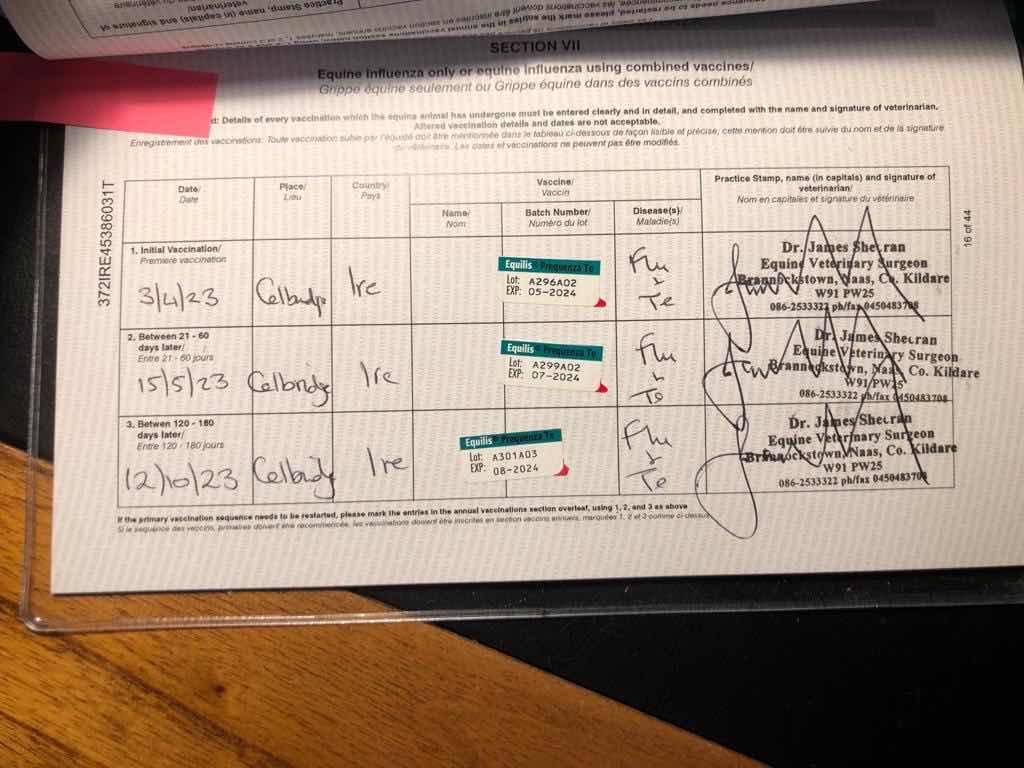 SECTION VII
Equine influenza only or equine influenza using combined vaccines/
Grippe équine seulement ou Grippe équine dans des vaccins combinés
d: Details of every vaccination which the equine animal has undergone must be entered clearly and in detail, and completed with the name and signature of veterinarian.
Altered vaccination details and dates are not acceptable.
Enregistrement des vaccinations: Toute vaccination subie par l'équidé doit être mentionnée dans le tableau ci-dessous de façon lisible et précise; cette mention doit être suivie du nom et de la signature
du vétérinaire. Les dates et vaccinations ne peuvent pas être modifiés.
372IRE45386031T
16 of 44
Date/
Date
Place/
Lieu
Country/
Pays
Vaccine/
Vaccin
Name/
Nom
Batch Number/
Numéro du lot
Disease(s)/
Maladie(s)
Practice Stamp, name (in capitals) and signature of
veterinarian/
Nom en capitales et signature du vétérinaire
1. Initial Vaccination/
Premiere vaccination
3/4/23
Celbridge
Ire
Equilis Prequenza Te
Lot: A296A02
EXP: 05-2024
Flu
Te
Dr. James Sheeran
Equine Veterinary Surgeon
Brannockstown, Naas, Co. Kildare
W91 PW25
086-2533322 ph/fax 0450483708
2. Between 21 - 60
days later/
Entre 21 - 60 jours
15/5/23
Celbridge
Ire
Equilis Prequenza Te
Lot: A299A02
EXP: 07-2024
Flu
Te
Dr. James Sheeran
Equine Veterinary Surgeon
Brannockstown, Naas, Co. Kildare
W91 PW25
086-2533322 ph/fax 0450483708
3. Betwen 120 - 180
days later/
Entre 120 - 180 jours
12/10/23
Celbridge
Ire
Equilis Prequenza Te
Lot: A301A03
EXP: 08-2024
Flu
Te
Dr. James Sheeran
Equine Veterinary Surgeon
Brannockstown, Naas, Co. Kildare
W91 PW25
086-2533322 ph/fax 0450483708
If the primary vaccination sequence needs to be restarted, please mark the entries in the annual vaccinations section overleaf, using 1, 2, and 3 as above
Si le sequence des vaccins, primaires doivent être recommencée, les vaccinations doivent être inscrites en section vaccins annuels, marquées 1, 2 et 3 comme ci-dessus